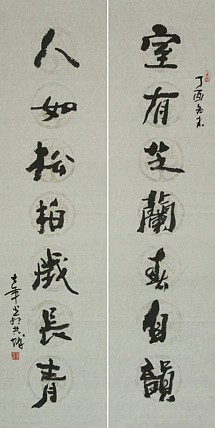 室有芝蘭春自韻
丁酉
人如松柏歲長青